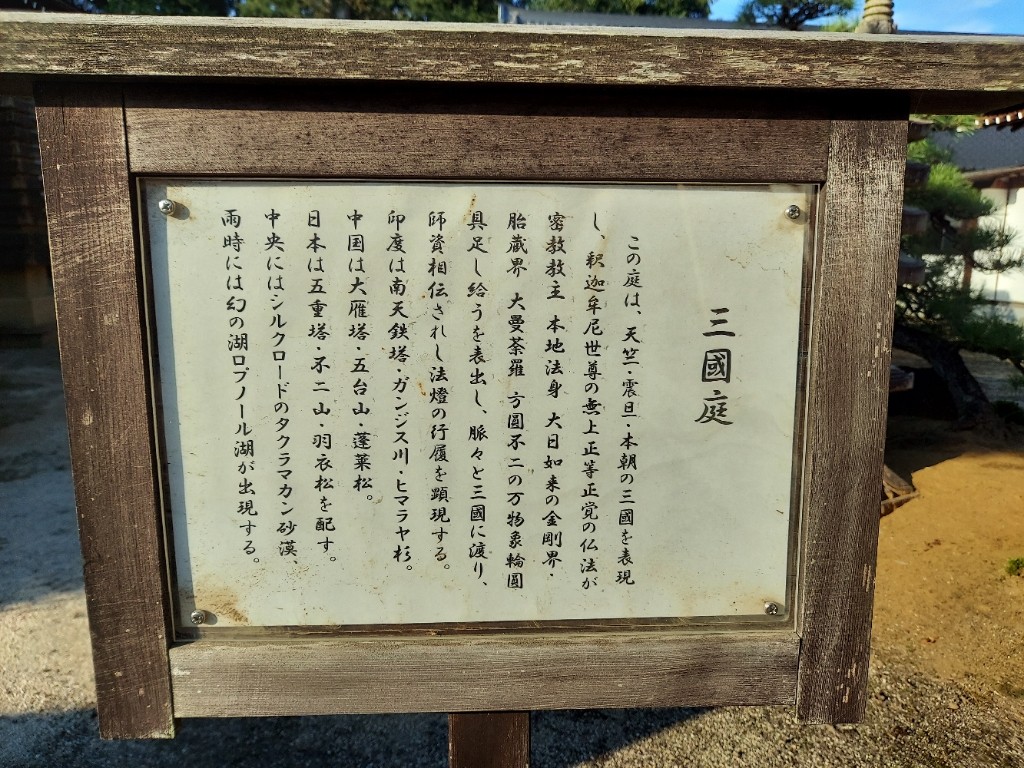 三國庭
この庭は、天竺・震旦・本朝の三國を表現
し、釈迦牟尼世尊の無上正等正覚の仏法が
密教教主 本地法身 大日如来の金剛界・
胎蔵界 大曼荼羅 方圓不二の万物象輪圓
具足し給うを表出し、脈々と三國に渡り、
師資相伝されし法燈の行履を顕現する。
印度は南天鉄塔・ガンジス川・ヒマラヤ杉。
中国は大雁塔・五台山・蓬莱松。
日本は五重塔・不二山・羽衣松を配す。
中央にはシルクロードのタクラマカン砂漠、
雨時には幻の湖ロプノール湖が出現する。